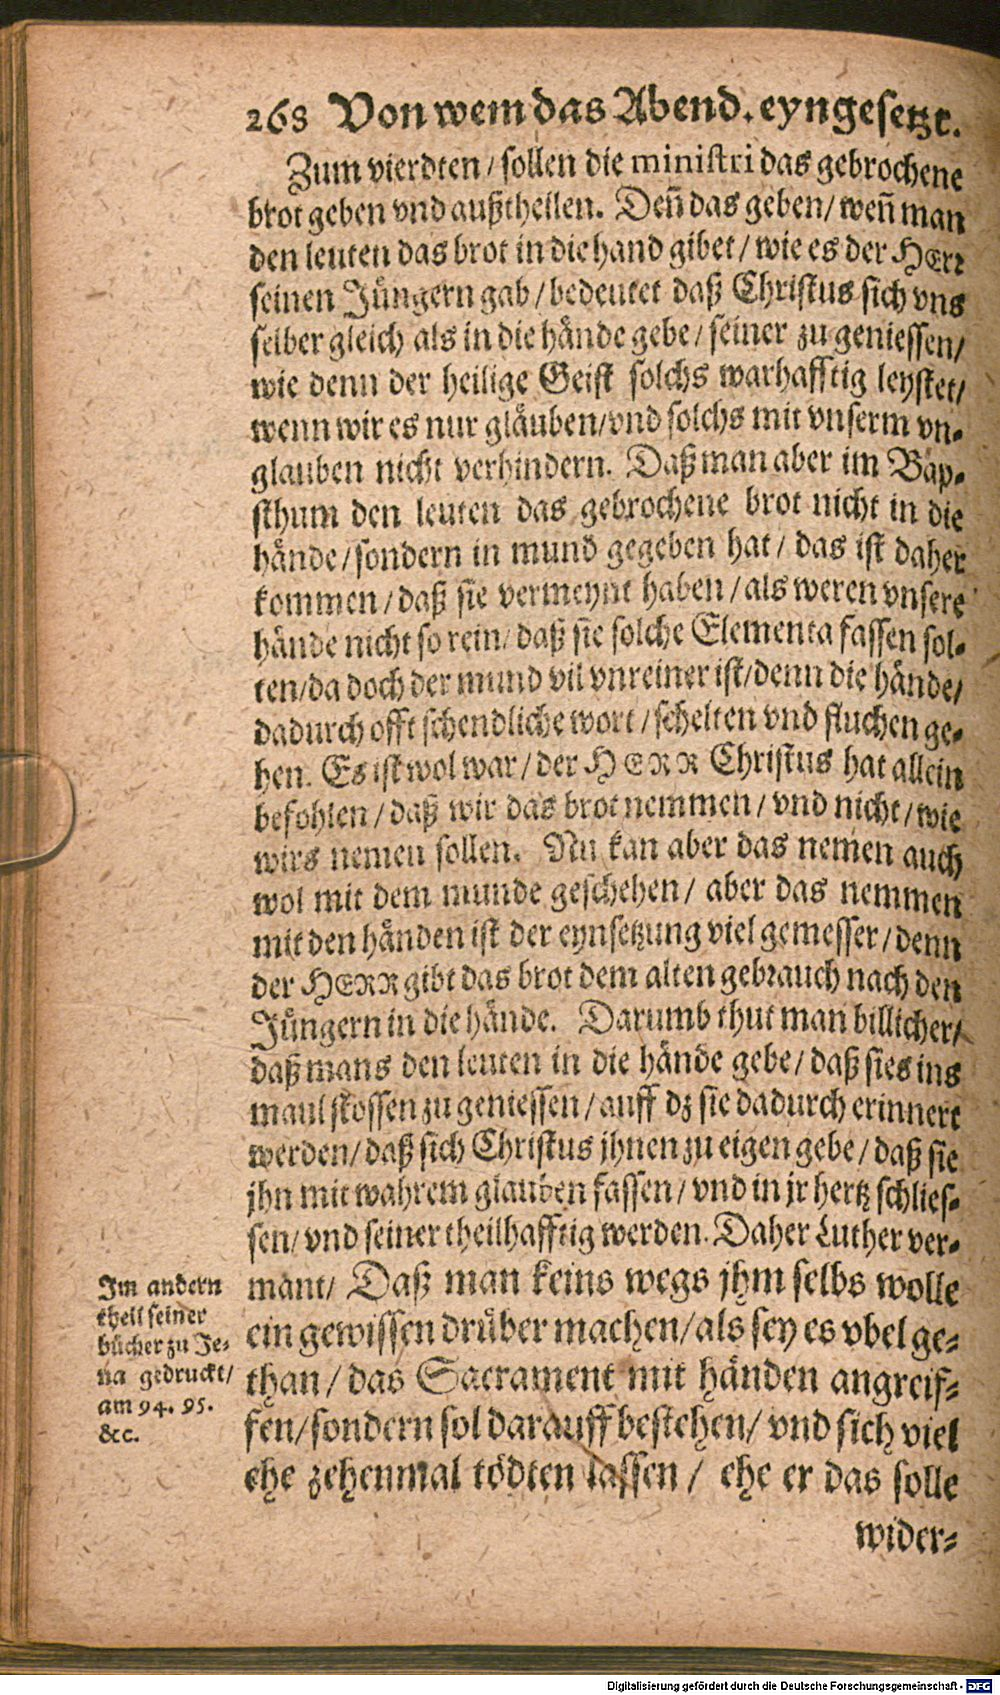 268 Von wem das Abend. eyngesetzt.
Zum vierdten / sollen die ministri das gebrochene
brot geben vnd außtheilen. Deñ das geben / weñ man
den leuten das brot in die hand gibet / wie es der HErr
seinen Jüngern gab / bedeutet daß Christus sich vns
selber gleich als in die hände gebe / seiner zu geniessen /
wie denn der heilige Geist solchs warhafftig leystet /
wenn wir es nur gläuben / vnd solchs mit vnserm vn-
glauben nicht verhindern. Daß man aber im Bap-
sthum den leuten das gebrochene brot nicht in die
hände / sondern in mund gegeben hat / das ist daher
kommen / daß sie vermeynt haben / als weren vnsere
hände nicht so rein / daß sie solche Elementa fassen sol-
ten / da doch der mund vil vnreiner ist / denn die hände /
dadurch offt schendliche wort / schelten vnd fluchen ge-
hen. Es ist wol war / der HERR Christus hat allein
befohlen / daß wir das brot nemmen / vnd nicht / wie
wirs nemen sollen. Nu kan aber das nemen auch
wol mit dem munde geschehen / aber das nemmen
mit den händen ist der eynsetzung viel gemesser / denn
der HERR gibt das brot dem alten gebrauch nach den
Jüngern in die hände. Darumb thut man billicher /
daß mans den leuten in die hände gebe / daß sies ins
maul stossen zu geniessen / auff dz sie dadurch erinnert
werden / daß sich Christus jhnen zu eigen gebe / daß sie
jhn mit wahrem glauben fassen / vnd in jr hertz schlies-
sen / vnd seiner theilhafftig werden. Daher Luther ver-
mant / Daß man keins wegs jhm selbs wolle
ein gewissen drüber machen / als sey es vbel ge-
than / das Sacrament mit händen angreif-
fen / sondern sol darauff bestehen / vnd sich viel
ehe zehenmal tödten lassen / ehe er das solle
wider-
Im andern
theil seiner
bücher zu Je-
na gedruckt /
am 94. 95.
&c.
Digitalisierung gefördert durch die Deutsche Forschungsgemeinschaft - DFG